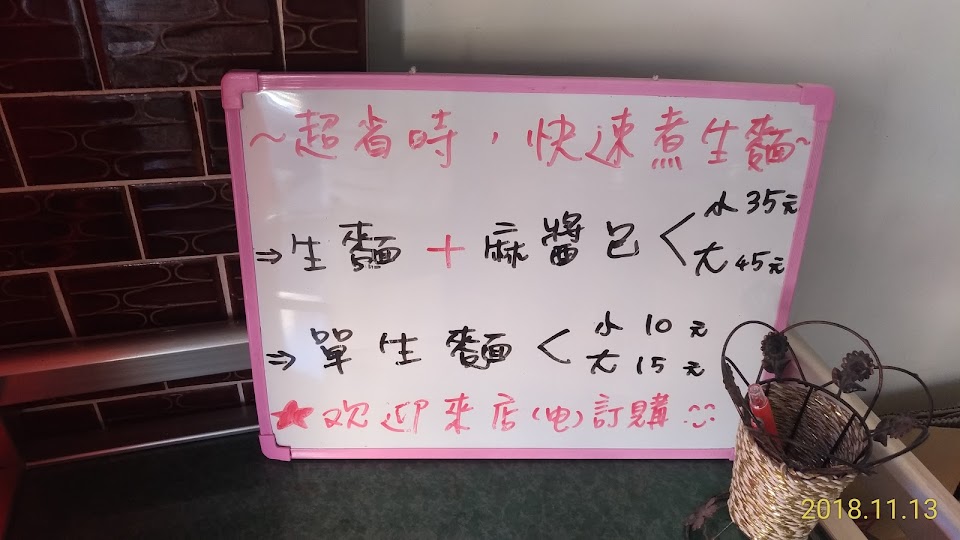 ~超省時，快速煮生麵~
⇒生麵+麻醬包<小35元
大45元
⇒單生麵<小10元
大15元
★欢迎來店(电)訂購
2018.11.13